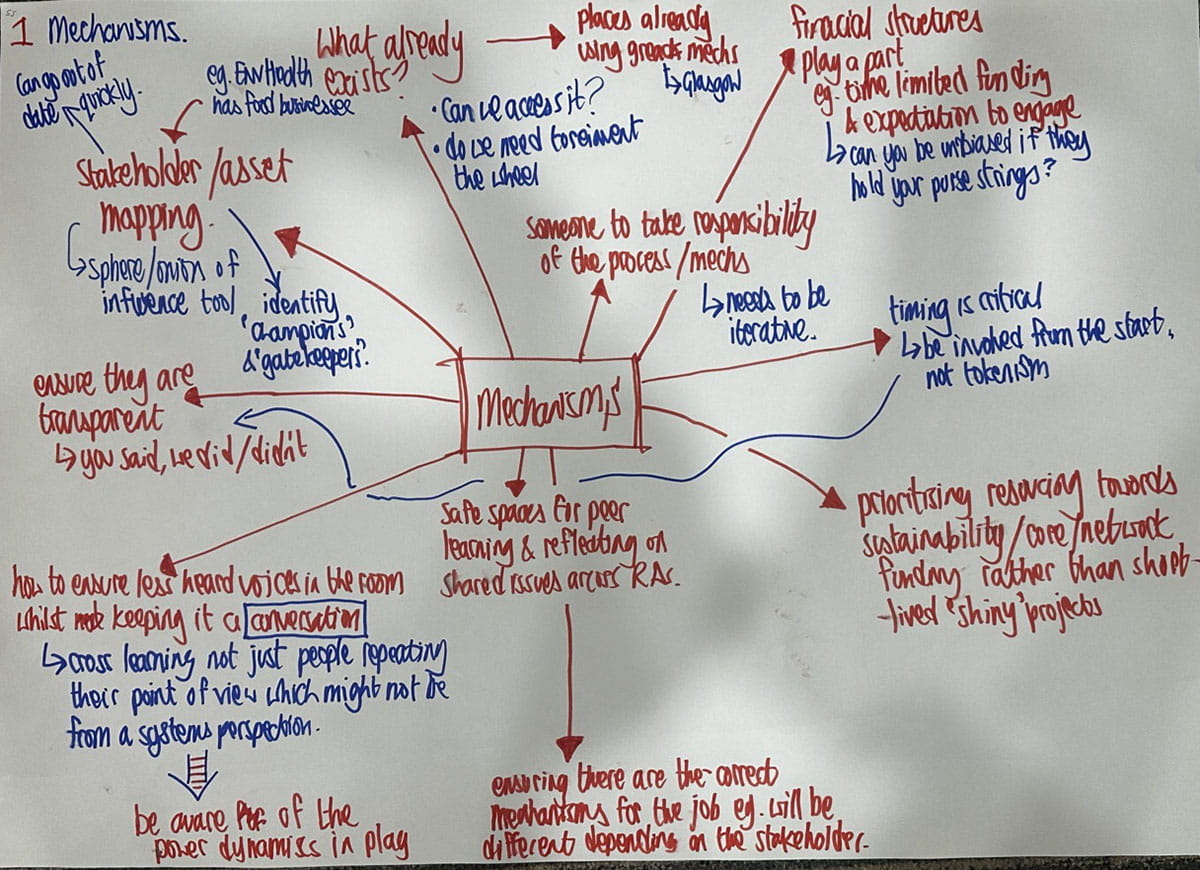 1 Mechanisms.
can go out of
date quickly.
eg. Env Health
has food businesses
Stakeholder/asset
mapping.
↳ sphere/onion of
influence tool
identify
'champions'
& 'gatekeepers'.
What already
exists?
• Can we access it?
• do we need to reinvent
the wheel
places already
using great mechs
↳ Glasgow
financial structures
play a part
eg. time limited funding
& expectation to engage
↳ can you be unbiased if they
hold your purse strings?
someone to take responsibility
of the process/mechs
↳ needs to be
iterative.
timing is critical
↳ be involved from the start,
not tokenism
Mechanisms
ensure they are
transparent
↳ you said, we did/didn't
prioritising resourcing towards
sustainability/core/network
funding rather than short-
-lived 'shiny' projects
safe spaces for peer
learning & reflecting on
shared issues across RAs.
how to ensure less heard voices in the room
whilst keeping it a conversation
↳ cross learning not just people repeating
their point of view which might not be
from a systems perspection.
be aware of the
power dynamics in play
ensuring there are the correct
mechanisms for the job eg. will be
different depending on the stakeholder.